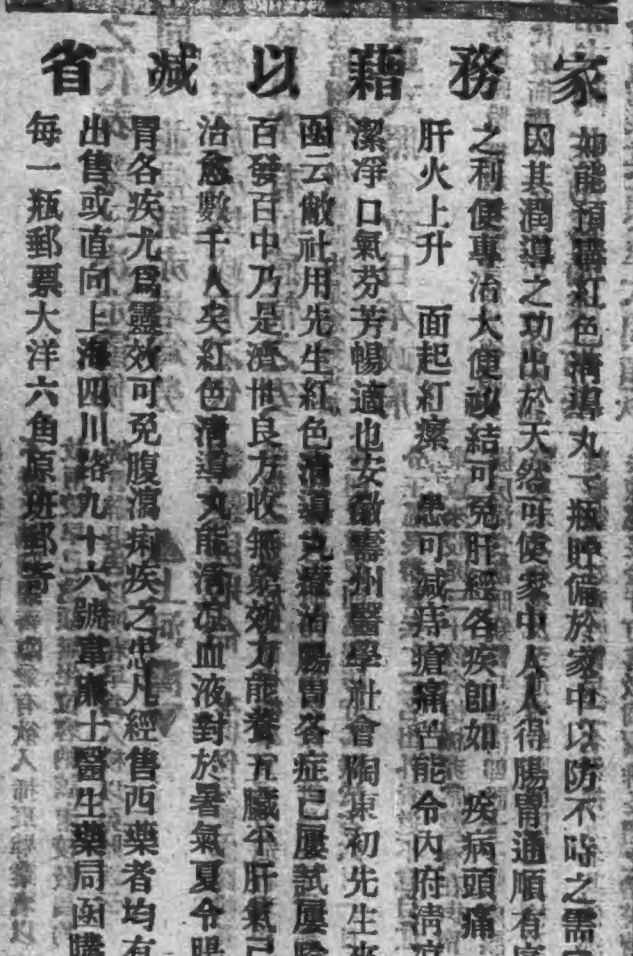 家務藉以減省
如能預購紅色清導丸一瓶貯備於家中以防不時之需
因其潤導之功出於天然可使家中人人得腸胃通順有
之利便專治大便秘結可免肝經各疾即如 疾病頭痛
肝火上升 面起紅瘰 患可減痔瘡痛苦能令內府清
潔凈口氣芬芳暢適也安徽壽州醫學社會陶東初先生來
函云敝社用先生紅色清導丸療治腸胃各症已屢試屢驗
百發百中乃是濟世良方收無窮效力能養五臟平肝氣已
治愈數千人矣紅色清導丸能清涼血液對於暑氣夏令腸
胃各疾尤爲靈效可免腹瀉痢疾之患凡經售西藥者均有
出售或直向上海四川路九十六號韋廉士醫生藥局函購
每一瓶郵票大洋六角原班郵寄